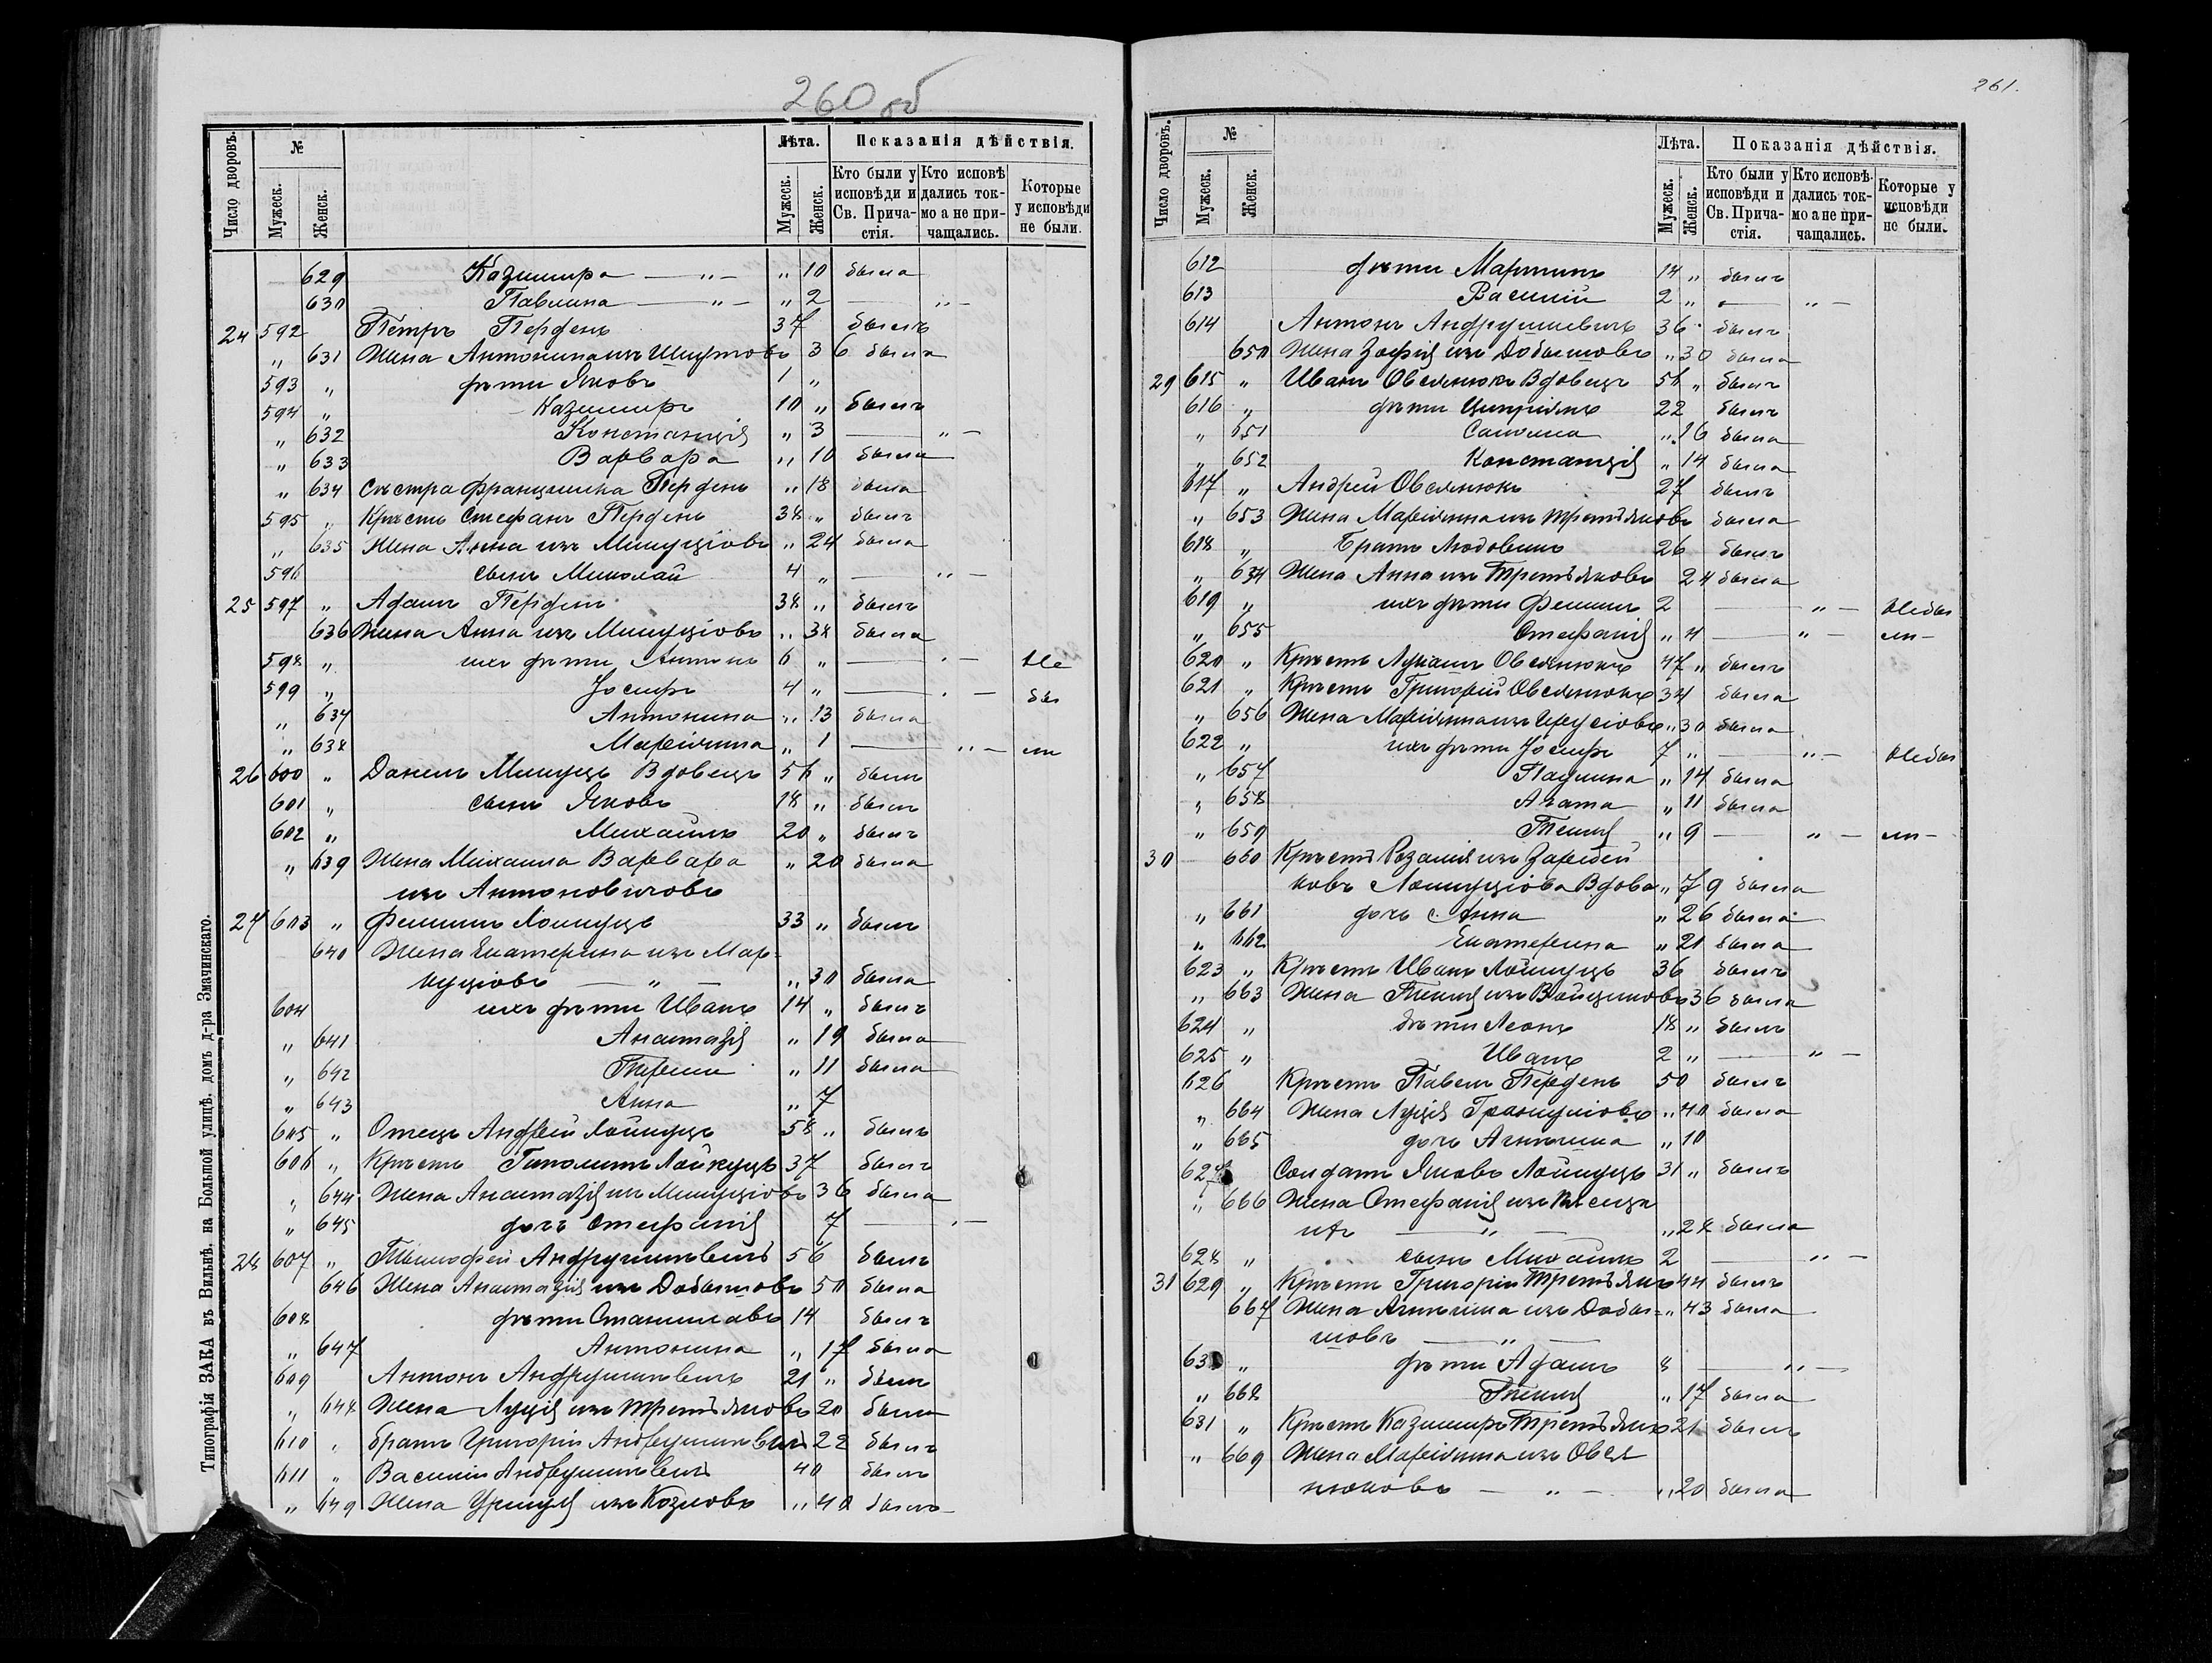 260 об
Число дворовъ.
№
Мужеск.
Женск.
Лѣта.
Мужеск.
Женск.
Показанія дѣйствія.
Кто были у исповѣди и Св. Прича-стія.
Кто исповѣ дались ток-мо а не при-чащались.
Которые у исповѣди не были.
629 Казимира — „ — „ 10 была
630 Павлина — „ — „ 2 — „ —
24 592 Петръ Перденъ 37 былъ
„ 631 Жена Антонина изъ 36 была
593 „ дѣти Яковъ 1 „
594 „ Казимиръ 10 „ былъ
„ 632 Констанція „ 3 — „ —
„ 633 Варвара „ 10 была
„ 634 Сестра Францишка Перденъ „ 18 была
595 „ Крѣстъ Стефанъ Перденъ 38 „ былъ
„ 635 Жена Анна изъ Микуціовъ „ 24 была
596 сынъ Миколай 4 „ — „ —
25 597 „ Адамъ Перденъ 38 „ былъ
636 Жена Анна изъ Микуціовъ „ 38 была
598 „ ихъ дѣти Антонъ 6 „ — „ — Не
599 „ Іосифъ 4 „ — „ — бы
„ 637 Антонина „ 13 была
„ 638 Маріянна „ 1 — „ — ли
26 600 „ Данилъ Микуць Вдовецъ 56 „ былъ
601 „ сынъ Яковъ 18 „ былъ
602 „ Михаилъ 20 „ былъ
„ 639 Жена Михаила Варвара „ 20 была
изъ Антоновичовъ
27 603 „ Филипъ Лойкуць 33 „ былъ
640 Жена Екатерина изъ Мар=
куціовъ — „ — „ 30 была
604 ихъ дѣти Иванъ 14 „ былъ
„ 641 Анастазія „ 19 была
„ 642 „ 11 была
„ 643 Анна „ 7
605 „ Отецъ Андрей Лойкуць 58 „ былъ
606 „ Крѣстъ Гиполитъ Лойкуць 37 былъ
„ 644 Жена Анастазія изъ Микуціовъ 36 была
„ 645 дочь Стефанія 7 — „ —
28 607 „ Тимофей Андрушкевичъ 56 былъ
646 Жена Анастазія изъ Добышовъ 50 была
608 дѣти Станиславъ 14 былъ
„ 647 Антонина „ 17 была
609 Антонъ Андрушкевичъ 21 „ былъ
„ 648 Жена Луція изъ Третьяковъ 20 была
610 „ братъ Григорій Андрушкевичъ 22 былъ
611 „ Василій Андрушкевичъ 40 былъ
„ 649 Жена Уршуля изъ Козловъ „ 40 была
Типографія ЗАКА въ Вильнѣ, на Большой улицѣ, домъ д-ра Змачинскаго.
261.
Число дворовъ.
№
Мужеск.
Женск.
Лѣта.
Мужеск.
Женск.
Показанія дѣйствія.
Кто были у исповѣди и Св. Прича-стія.
Кто исповѣ-дались ток-мо а не при-чащались.
Которые у исповѣди не были.
612 дѣти Мартинъ 14 „ былъ
613 Василій 2 „ — „ —
614 Антонъ Андрушкевичъ 36 былъ
650 Жена Зофія изъ Добышовъ „ 30 была
29 615 „ Иванъ Овсянюкъ Вдовецъ 56 „ былъ
616 „ дѣти Циприянъ 22 былъ
„ 651 Саломея „ 16 была
„ 652 Констанція „ 14 была
617 „ Андрей Овсянюкъ 27 былъ
„ 653 Жена Маріянна изъ Третьяковъ была
618 „ Братъ Людовикъ 26 былъ
„ 654 Жена Анна изъ Третьяковъ 24 была
619 „ ихъ дѣти Филипъ 2 — „ — Небы
„ 655 Стефанія „ 4 — „ — ли —
620 „ Крѣстъ Лукашъ Овсянюкъ 47 „ былъ
621 „ Крѣстъ Григорій Овсянюкъ 34 была
„ 656 Жена Маріянна изъ „ 30 была
622 „ ихъ дѣти Іосифъ 7 „ — „ — Небы
„ 657 Паулина „ 14 была
„ 658 Агата „ 11 была
„ 659 Текля „ 9 — „ — ли —
30 660 Крѣстъ Розалія изъ
ковъ Лойкуціова Вдова „ 79 была
„ 661 дочь Анна „ 26 была
„ 662 Екатерина „ 21 была
623 „ Крѣстъ Иванъ Лойкуць 36 былъ
„ 663 Жена Текля изъ 36 была
624 „ дѣти Леонъ 18 „ былъ
625 „ Иванъ 2 „ — „ —
626 Крѣстъ Павелъ Перденъ 50 былъ
„ 664 Жена Луція „ 40 была
„ 665 дочь Агнешка „ 10
627 Солдатъ Яковъ Лойкуць 31 „ былъ
„ 666 Жена Стефанія изъ
„ — „ 28 была
628 „ сынъ Михаилъ 2 — „ —
31 629 „ Крѣстъ Григорій Третьякъ 44 былъ
667 Жена Агнешка изъ Добы= „ 43 была
шовъ — „ —
63 „ дѣти Адамъ 8 — „ —
„ 668 Текля „ 17 была
631 „ Крѣстъ Казимиръ Третьякъ 21 былъ
„ 669 Жена Маріянна изъ Овся
нюковъ — „ — „ 20 была